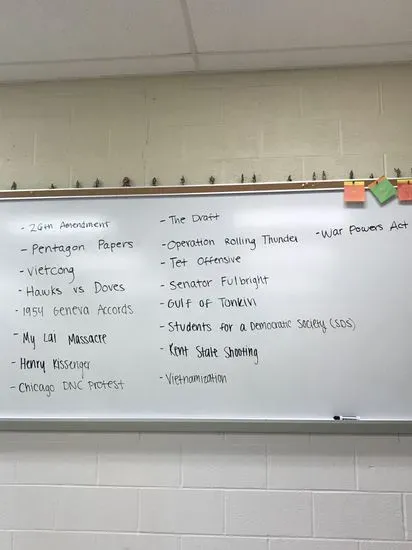 - 26th Amendment
- Pentagon Papers
- Vietcong
- Hawks vs Doves
- 1954 Geneva Accords
- My Lai Massacre
- Henry Kissenger
- Chicago DNC Protest
- The Draft
- Operation Rolling Thunder
- Tet Offensive
- Senator Fulbright
- Gulf of Tonkin
- Students for a Democratic Society (SDS)
- Kent State Shooting
- Vietnamization
- War Powers Act